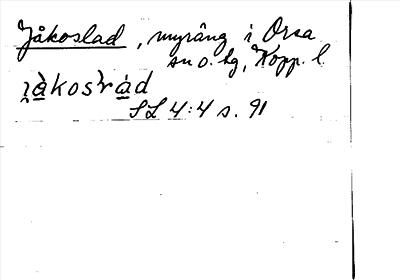 Jåkoslad, myräng i Orsa
sn o. tg, Kopp. l.
ı̯å̀kosʹrȧ̀d
SL 4:4 s. 91